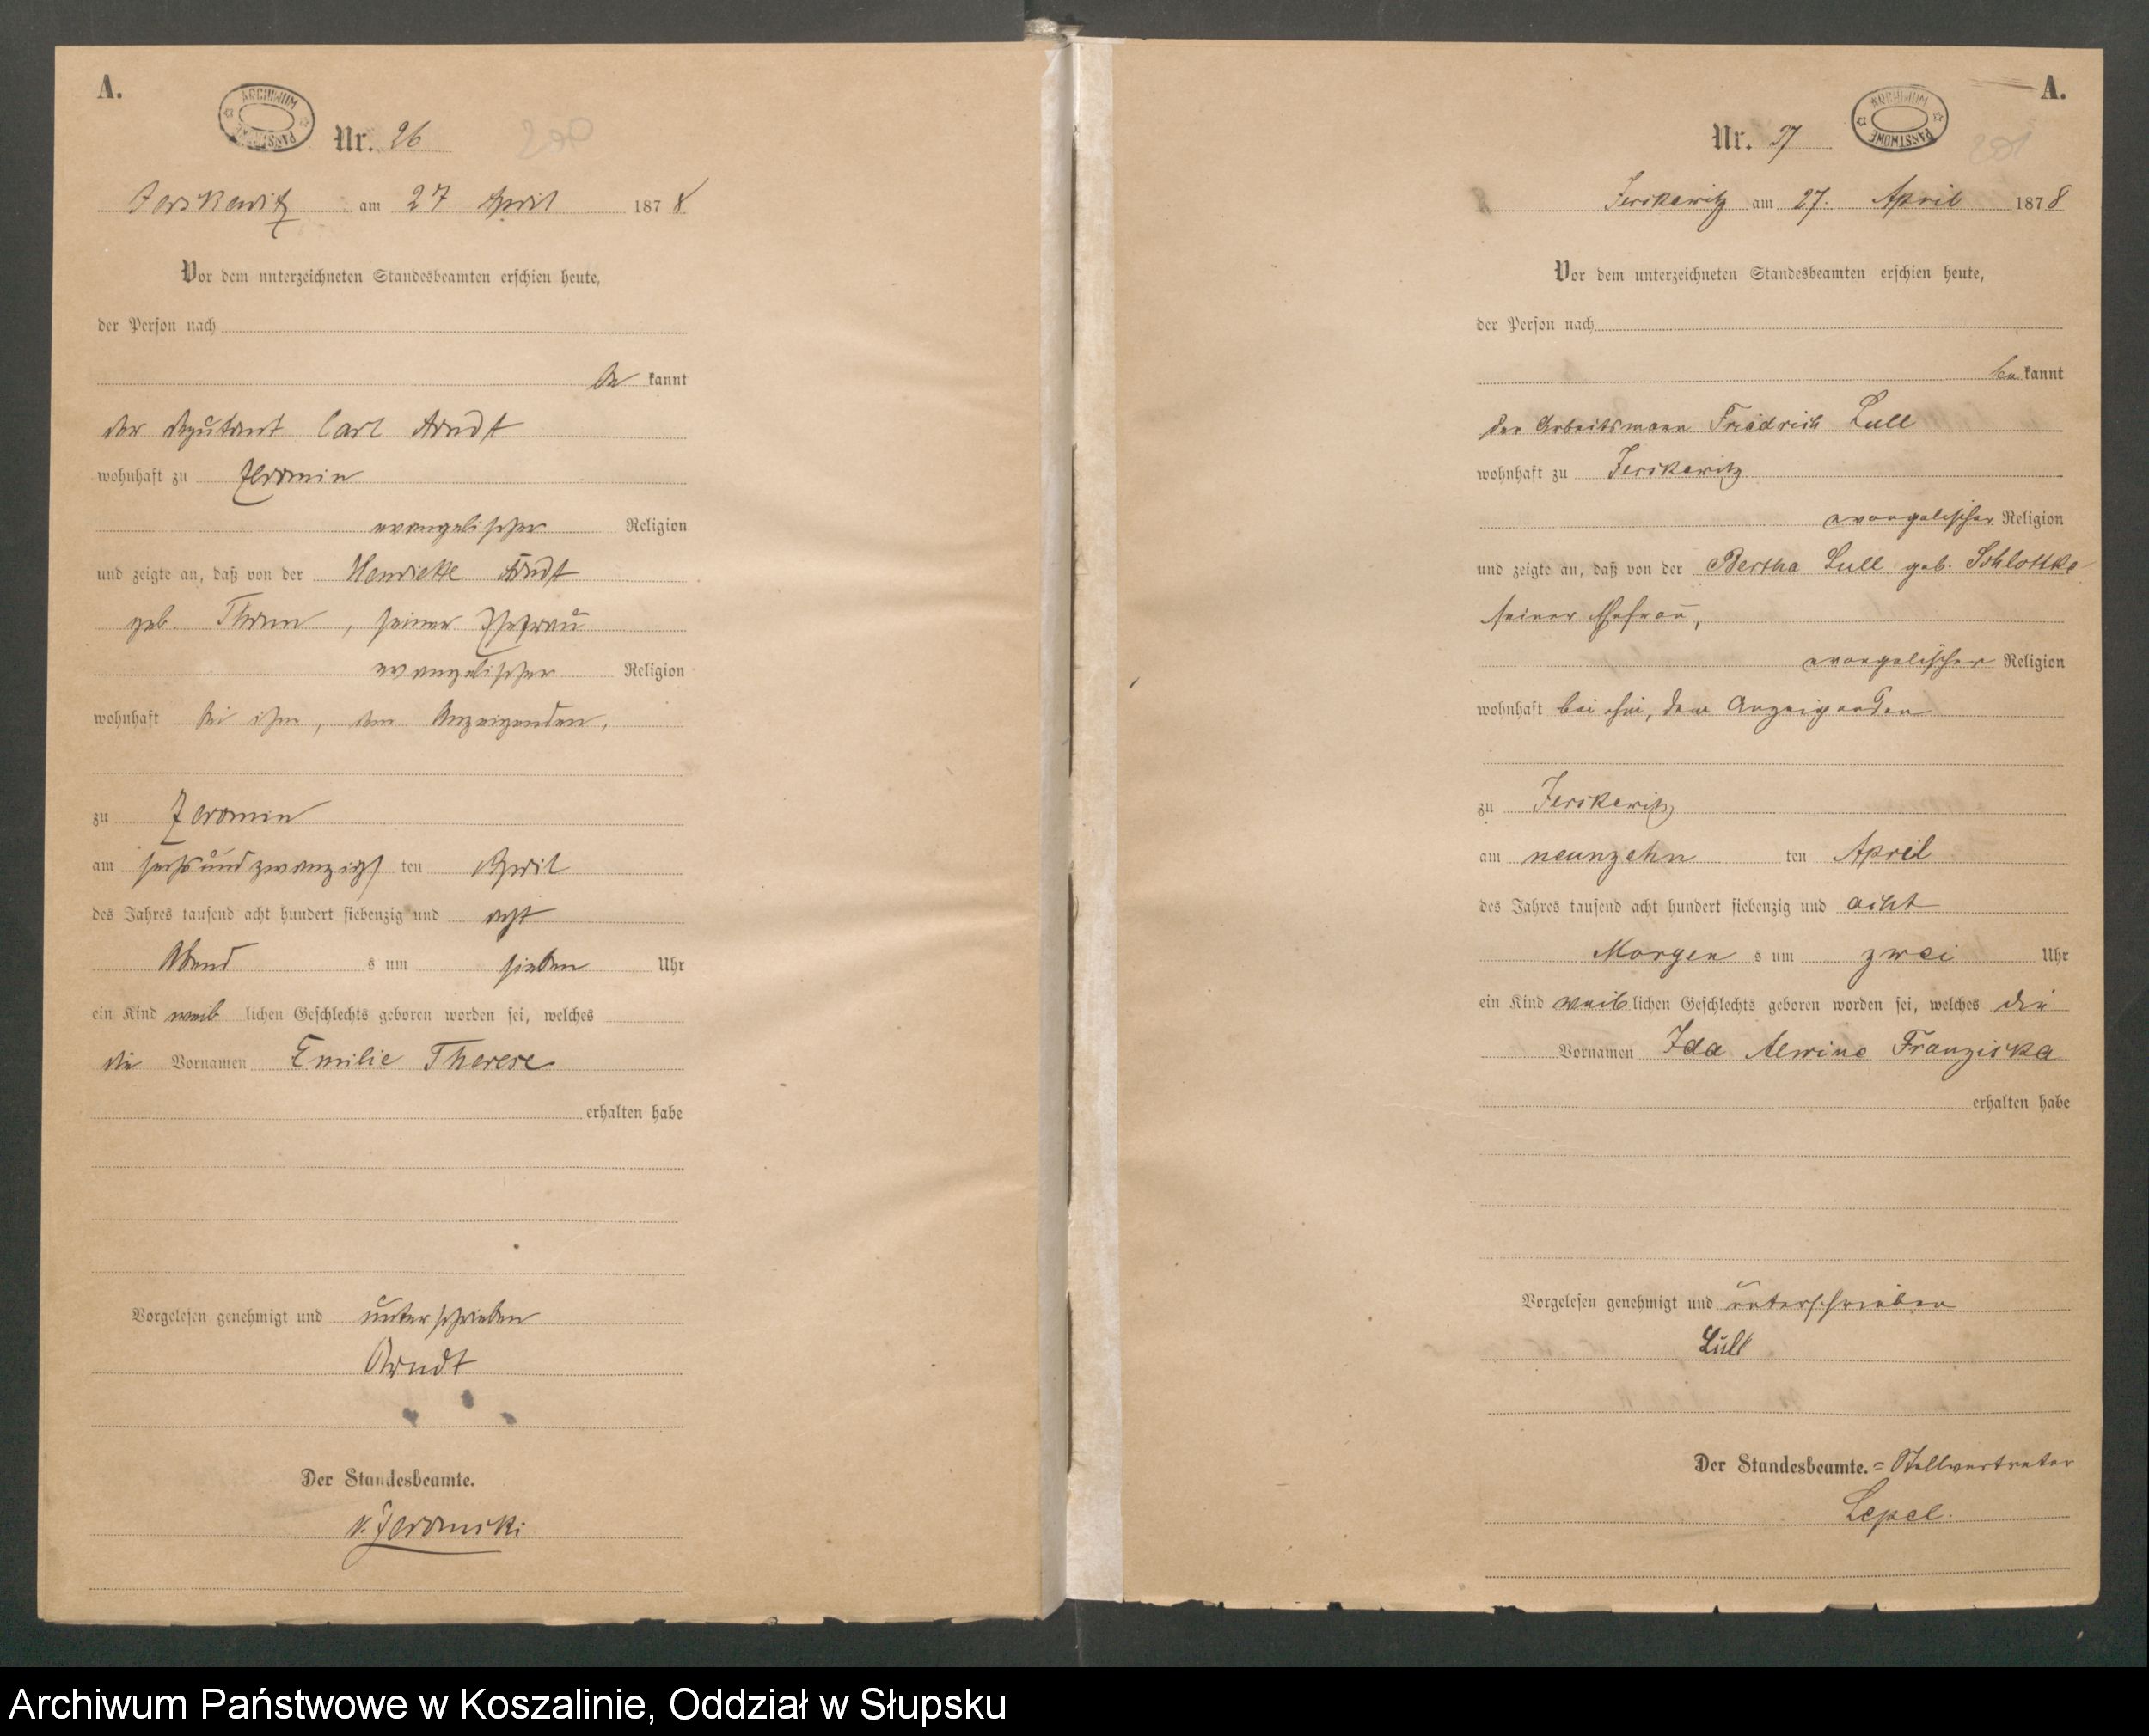 A.
ARCHIWUM PAŃSTWOWE
Nr. 26
Jerskewitz am 27 April 1878
Vor dem unterzeichneten Standesbeamten erschien heute,
der Person nach
be kannt
der Deputant Carl Arndt
wohnhaft zu Jeromin
evangelischer Religion
und zeigte an, daß von der Henriette Arndt
geb. , seiner Ehefrau
evangelischer Religion
wohnhaft bei ihm, dem Anzeigenden,
zu Jeromin
am sechsundzwanzigs ten April
des Jahres tausend acht hundert siebenzig und acht
Abend s um sieben Uhr
ein Kind weib lichen Geschlechts geboren worden sei, welches
die Vornamen Emilie Therese
erhalten habe
Vorgelesen genehmigt und unterschrieben
Arndt
Der Standesbeamte.
A.
ARCHIWUM PAŃSTWOWE
Nr. 27
Jerskewitz am 27. April 1878
Vor dem unterzeichneten Standesbeamten erschien heute,
der Person nach
be kannt
der Arbeitsmann Friedrich Lull
wohnhaft zu Jerskewitz
evangelischer Religion
und zeigte an, daß von der Bertha Lull geb. Schlottke
seiner Ehefrau,
evangelischer Religion
wohnhaft bei ihm, dem Anzeigenden
zu Jerskewitz
am neunzehn ten April
des Jahres tausend acht hundert siebenzig und acht
Morgen s um zwei Uhr
ein Kind weib lichen Geschlechts geboren worden sei, welches die
Vornamen Ida Alwine Franziska
erhalten habe
Vorgelesen genehmigt und unterschrieben
Lull
Der Standesbeamte. = Stellvertreter
Lepel.
Archiwum Państwowe w Koszalinie, Oddział w Słupsku